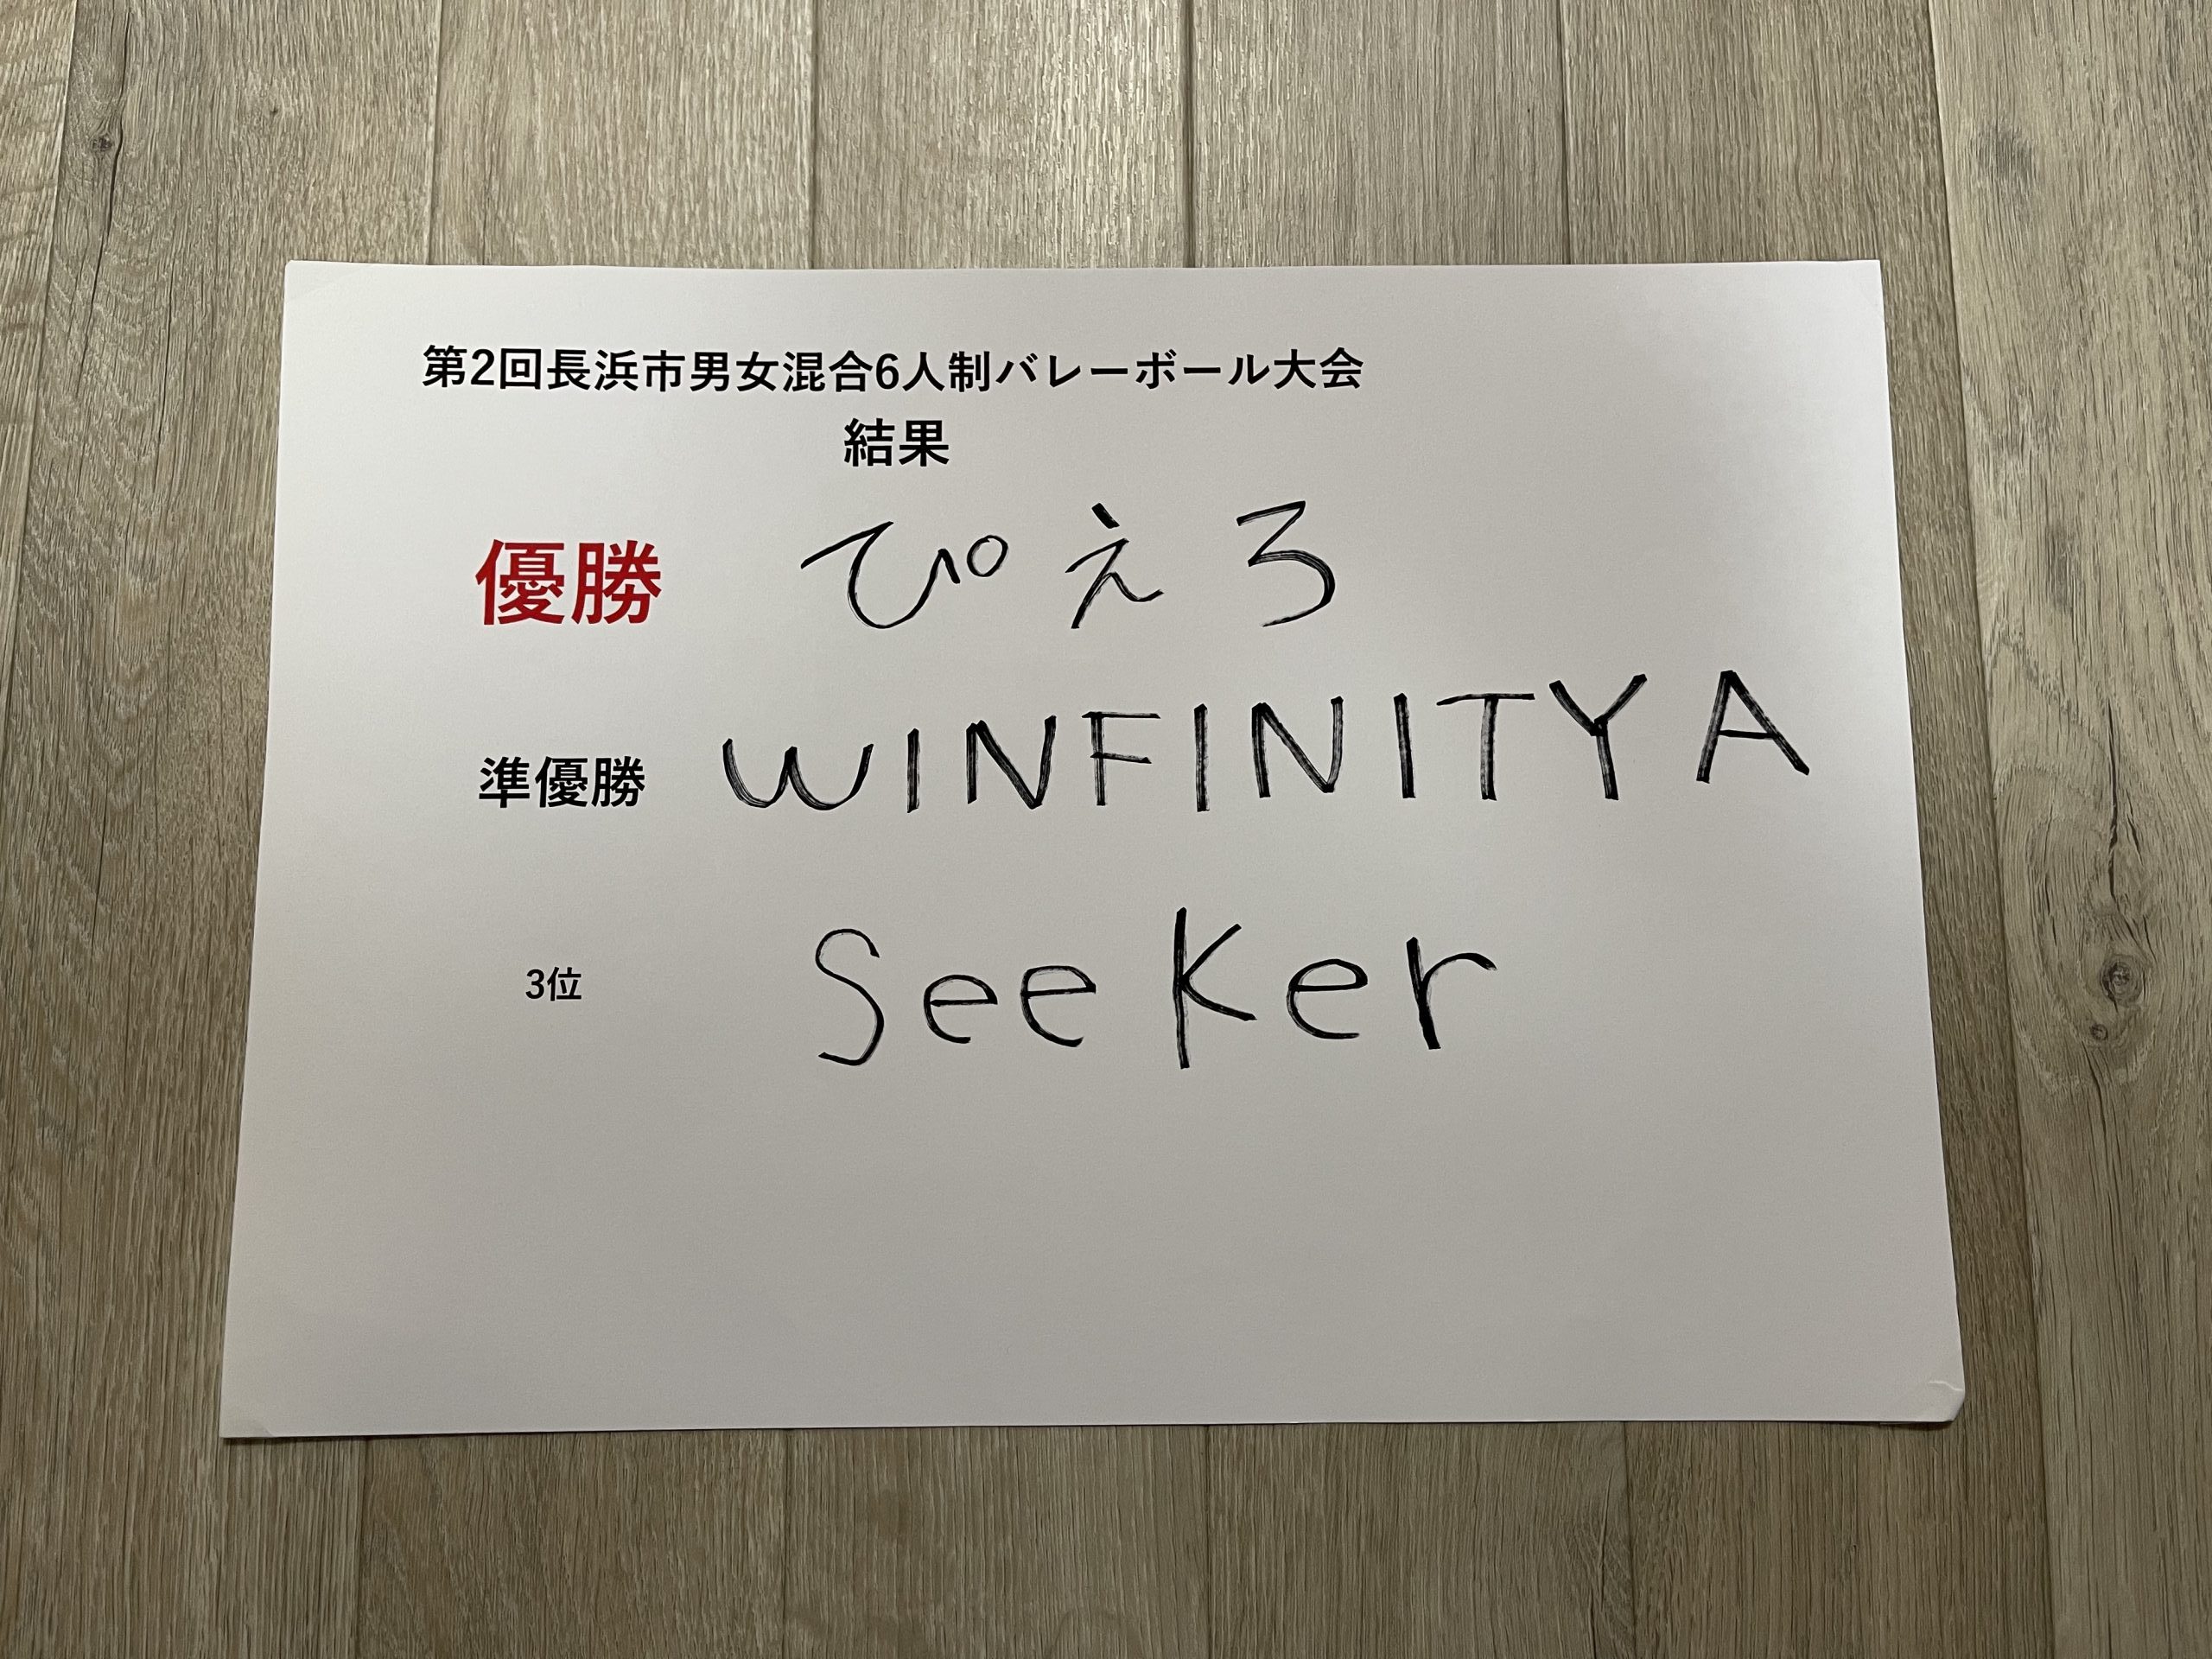 第2回長浜市男女混合6人制バレーボール大会
結果
優勝 ぴえろ
準優勝 WINFINITY A
3位 Seeker